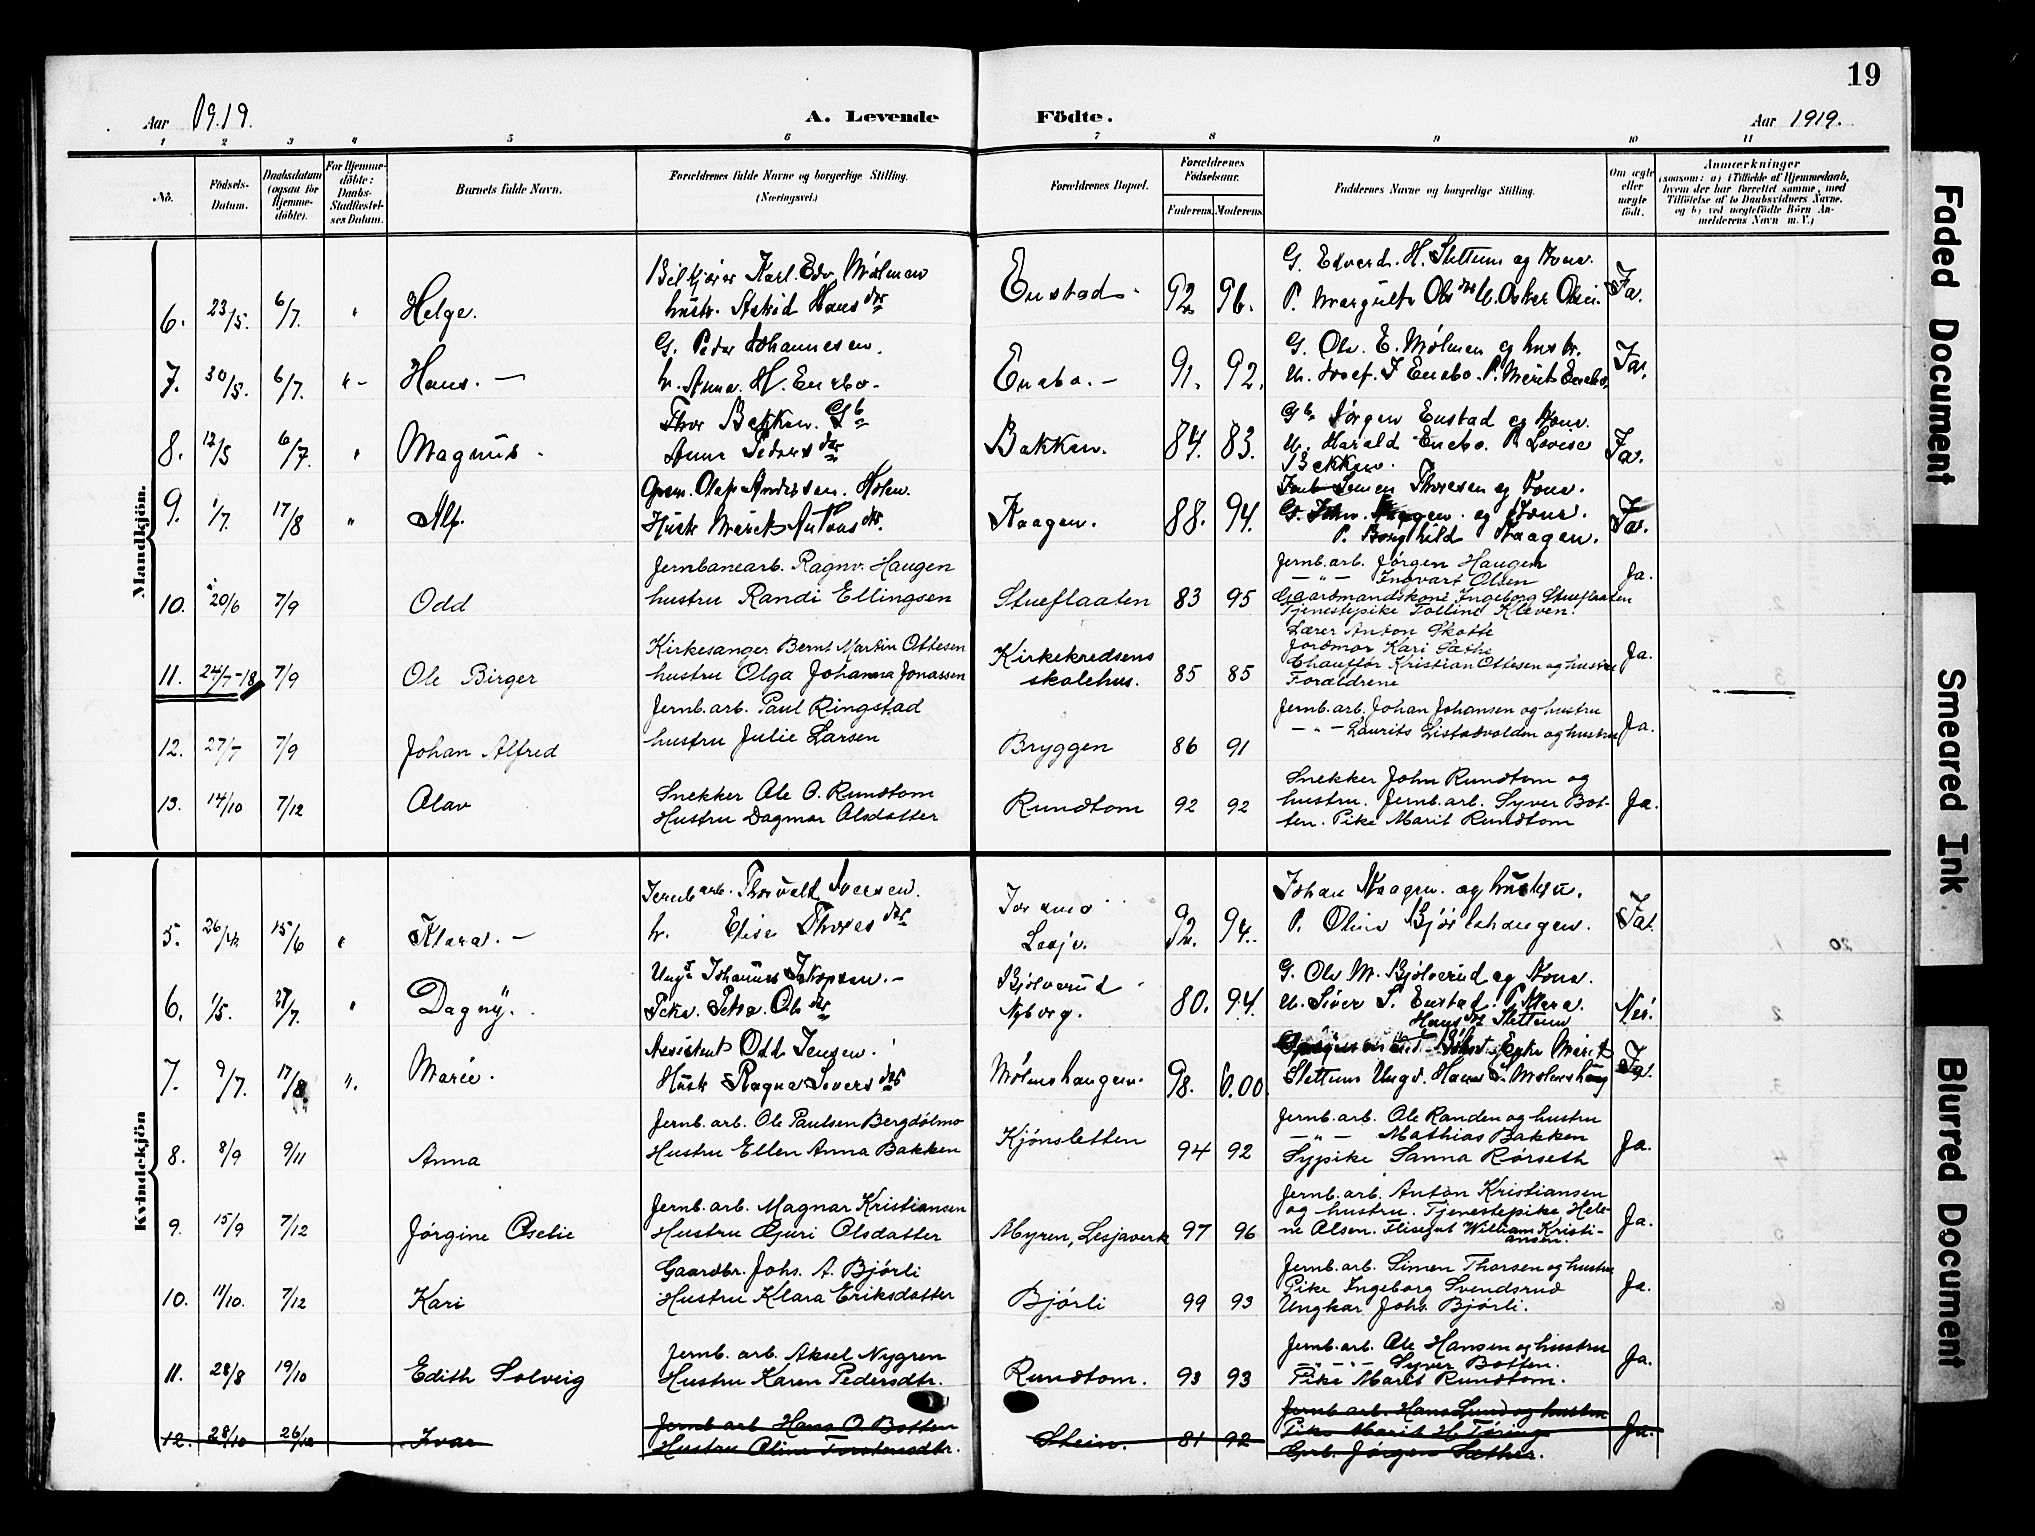 19
Aar 1919. A. Levende Födte. Aar 1919.
1 2 3 4 5 6 7 8 9 10 11
No.
Födsels-
Datum.
Daabsdatum
(ogsaa for
Hjemme-
döbte).
For Hjemme-
döbte:
Daabs-
Stadfæstel-
ses Datum.
Barnets fulde Navn.
Forældrenes fulde Navne og borgerlige Stilling.
(Næringsvei.)
Forældrenes Bopæl.
Forældrenes
Födselsaar.
Faderens. Moderens.
Faddernes Navne og borgerlige Stilling.
Om ægte
eller
uægte
födt.
Anmærkninger
(saasom: a) i Tilfælde af Hjemmedaab,
hvem der har forrettet samme, med
Tilföielse af to Daabsvidners Navne,
og b) ved uægtefödte Börn An-
melderens Navn m. V.)
Mandkjön.
6. 23/5. 6/7. " Helge.
Bilkjører Karl. Edv. Mølmen
hustr. Astrid Hansdtr
Enstad. 92 96.
G. Edvard. H. Stettum og Kone.
P. Margit Olsdtr U. Oskar Olsen.
Ja.
7. 30/5. 6/7. " - Hans. -
G. Peder Johannesen.
h. Anna. H. Enebo.
Enebo. - 91. 92.
G. Ole. E. Mølmen og hustr.
U. Josef. J Enebo. P. Marit Enebo
Ja.
8. 12/5 6/7. " Magnus.
Thor Bakken. Gb
Anne Pedersdtr
Bakken. 84. 83.
Gb Jørgen Enstad og Kone.
U. Harald Enebo. P. Lovise
Bakken.
Ja.
9. 1/7. 17/8 " Alf.
Olaf Andersen. Holen.
Hustr Marit Antonsdtr.
Kaagen. 88. 94.
Simen Thoresen og Kone.
og Kone.
P. Borghild Kaagen.
Ja.
10. 20/6 7/9 Odd
Jernbanearb. Ragnv. Haugen
hustru Randi Ellingsen
Stueflaaten 83 95
Jernb. arb. Jørgen Haugen
— " — Ingvart Olsen
Gaardmandskone Ingeborg Stueflaaten
Tjenestepike Tolline Kleven.
Ja.
11. 24/7-18 7/9 Ole Birger
Kirkesanger Bernt Martin Ottesen
hustru Olga Johanna Jonassen
Kirkekredsens
skolehus. 85 85
Lærer Anton Skotte
Jordmor Kari Sæthe
Chauffør Kristian Ottesen og hustru
Forældrene
Ja.
12. 27/7 7/9 Johan Alfred
Jernb. arb. Paul Ringstad
hustru Julie Larsen
Bryggen 86 91
Jernb. arb. Johan Johansen og hustru
— " — Laurits Listadvolden og hustru
Ja.
13. 14/10 7/12 Olav
Snekker Ole O. Rundtom
Hustru Dagmar Olsdatter
Rundtom 92 92
Snekker John Rundtom og
hustru. Jernb. arb. Syver Bot-
ten. Pike Marit Rundtom
Ja.
Kvindekjön
5. 26/4 15/6 " Klara. -
Jernb arb. Thorvald Iversen.
h. Elise Thoresdtr
Joramo
Lesje. 92. 94.
Johan Kaagen. og hustru.
P. Olina Bjørlehaugen.
Ja.
6. 1/5. 27/7. " Dagny.
Ungk Johannes Jakopsen. -
Pike. Petra. Olsdtr
Bjølverud
Nyborg. 80. 94.
G. Ole M. Bjølverud og Kone.
U. Siver S. Enstad. P. Klara.
Hansdtr Stettum
Nei.
7. 9/7. 17/8 ". Marie.
Assistent Odd Jensen.
Hustr Ragna Siversdtr
Mølmshaugen. 98. 0.00.
Marit
Stettum Ungk. Hans S. Mølmshaug
Ja.
8. 8/9 9/11 Anna
Jernb. arb. Ole Paulsen Bergdølmo
Hustru Ellen Anna Bakken
Kjønsletten 94 92
Jernb. arb. Ole Randen og hustru
— " — Mathias Bakken
Sypike Sanna Rørseth
Ja.
9. 15/9 7/12 Jørgine Oselie
Jernb. arb. Magnar Kristiansen
Hustru Guri Olsdatter
Myren, Lesjaverk 97 96
Jernb. arb. Anton Kristiansen
og hustru. Tjenestepike Hele-
ne Olsen. Flisegut William Kristi-
ansen.
Ja.
10. 11/10. 7/12 Kari
Gaardbr. Johs. A. Bjørli
Hustru Klara Eriksdatter
Bjørli 99 93
Jernb. arb. Simen Thorsen og hustru
Pike Ingeborg Svendsrud
Ungkar Johs. Bjørli.
Ja.
11. 28/8 19/10 Edith Solveig
Jernb. arb. Aksel Nygren
Hustru Karen Pedersdtr.
Rundtom. 93 93
Jernb. arb. Ole Hansen og hustru
— " — Syver Botten.
Pike Marit Rundtom.
Ja.
12. 28/10 26/12 Ivar
Jernb. arb Hans O. Botten
Hustru Oline Torstensdtr.
Stein. 81 92
Jernb. arb. Hans Lund og hustru
Pike Marit H. Tøring
Grb. Jørgen Sæther.
Ja.
Faded Document
Smeared Ink
Blurred Document